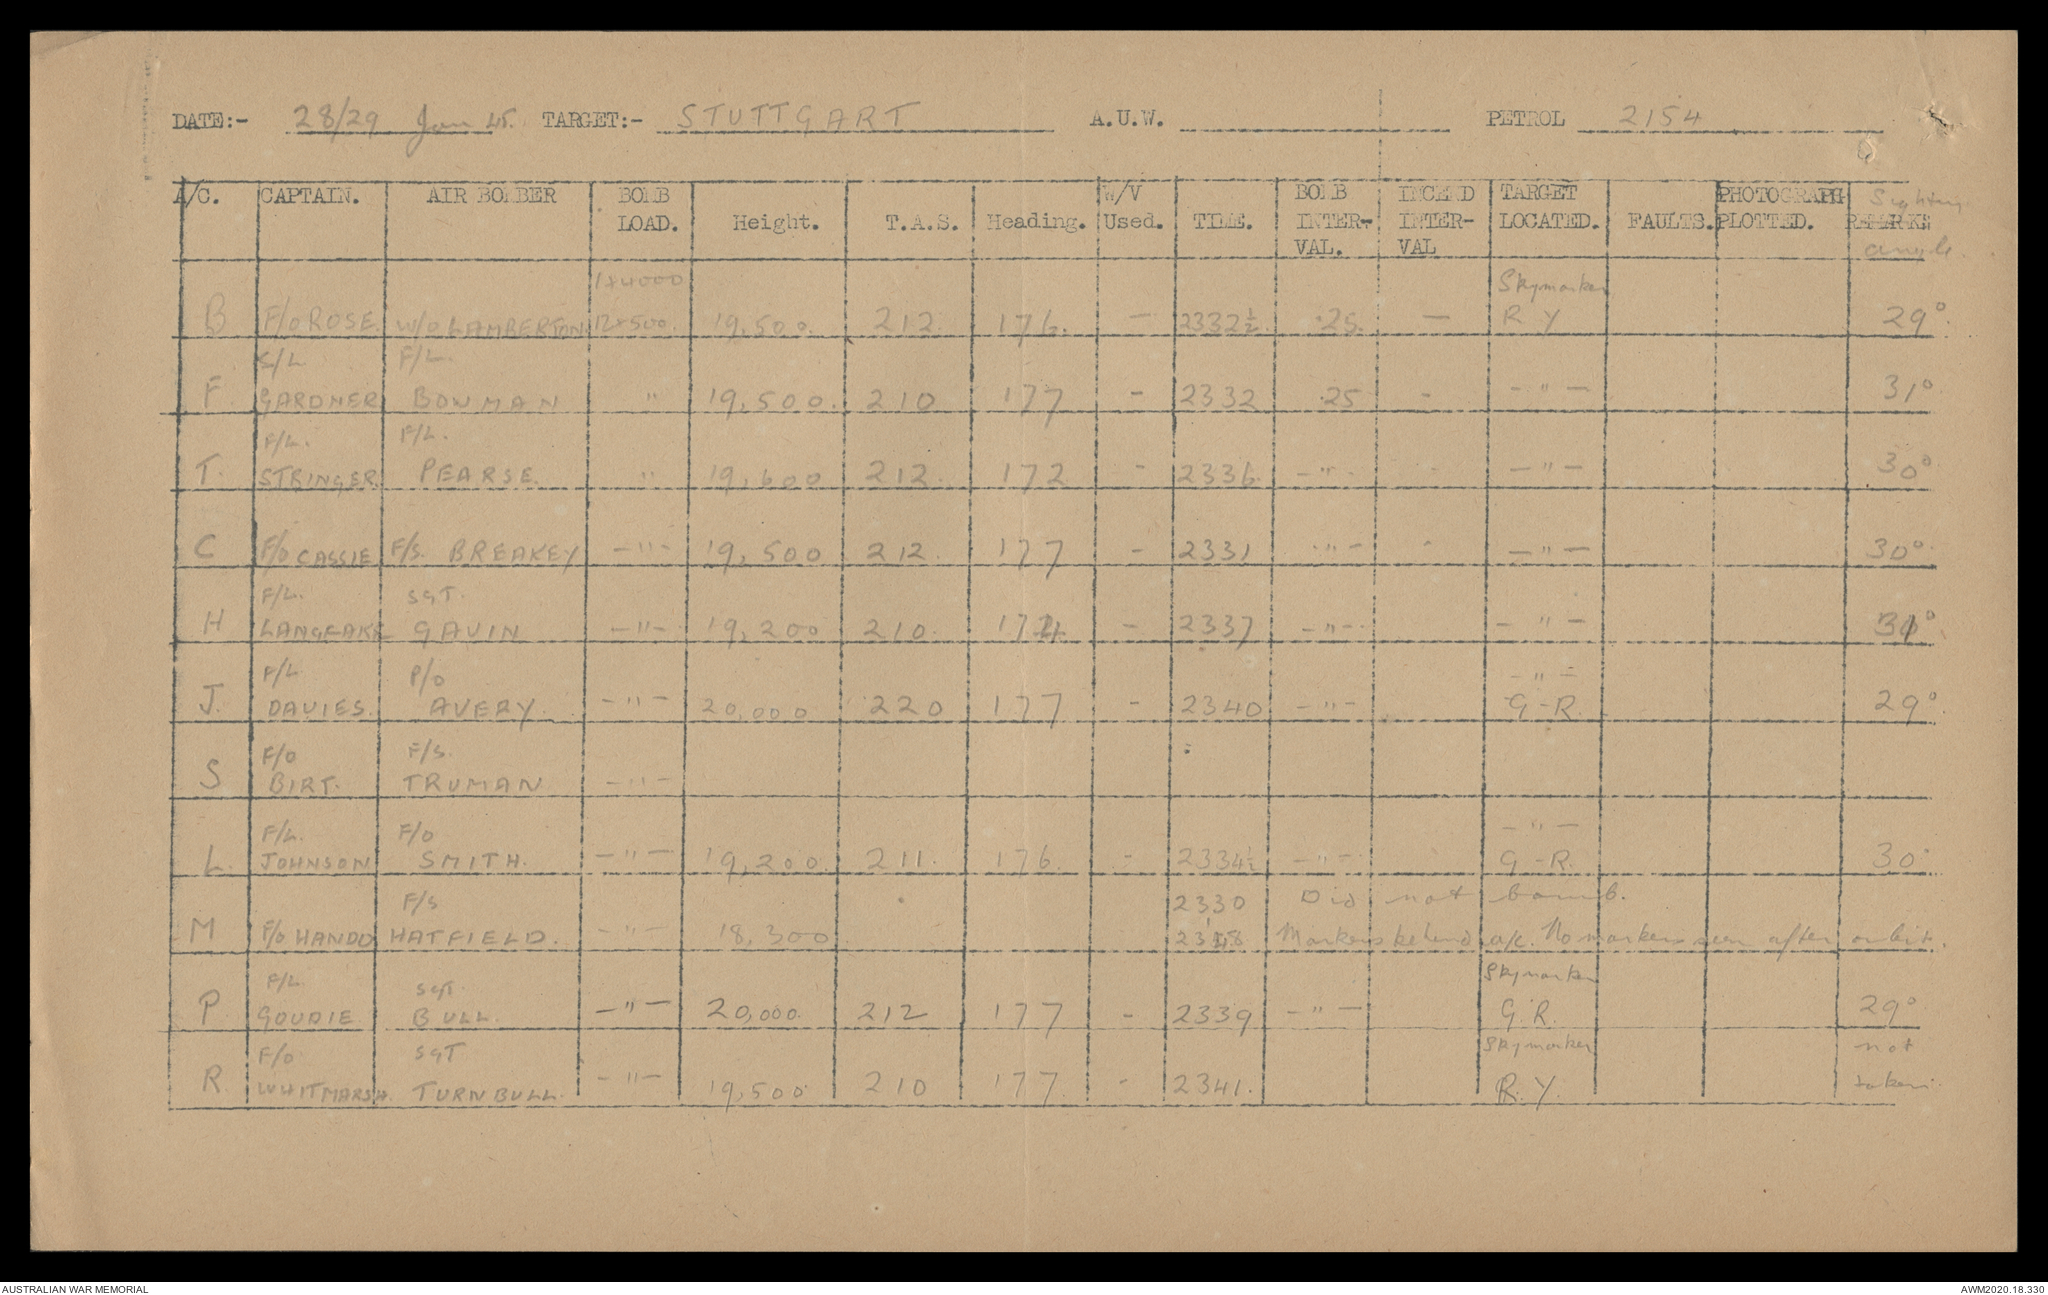 DATE:- 28/29 Jan 45. TARGET:- STUTTGART A.U.W. PETROL 2154
A/C. CAPTAIN. AIR BOMBER BOMB LOAD. Height. T.A.S. Heading. W/V Used. TIME. BOMB INTER-VAL. INCEND INTER-VAL TARGET LOCATED. FAULTS. PHOTOGRAPH PLOTTED. REMARKS Sighting angle.
B F/O ROSE. W/O LAMBERTON 1x4000 12x500. 19,500. 212. 176. - 2332½ .25. - Skymarker R Y 29°
F S/L GARDNER F/L. BOWMAN " 19,500. 210 177 - 2332 .25 - -"- 31°
T. F/L. STRINGER F/L. PEARSE. " 19,600 212. 172 - 2336. -"- - -"- 30°
C F/O CASSIE F/S. BREAKEY -"- 19,500 212. 177 - 2331 "- - -"- 30°
H F/L. SGT. GAVIN -"- 19,200 210. 174 - 2337 -"- -"- 31°
J. F/L DAVIES. P/O AVERY. -"- 20,000 220 177 - 2340 -"- -"- G-R. 29°
S F/O BIRT. F/S. TRUMAN -"-
L. F/L. JOHNSON F/O SMITH. -"- 19,200. 211. 176. - 2334½ -"- -"- G-R. 30°
M F/O HANDO F/S HATFIELD. -"- 18,300 2330 Did not bomb.
Markers behind a/c. No markers seen after orbit.
P F/L GOUDIE SGT. BULL. -"- 20,000. 212 177 - 2339 -"- Skymarker G.R. 29°
R. F/O WHITMARSH. SGT TURNBULL. -"- 19,500 210 177 - 2341. Skymarker R.Y. not taken.
AUSTRALIAN WAR MEMORIAL AWM2020.18.330